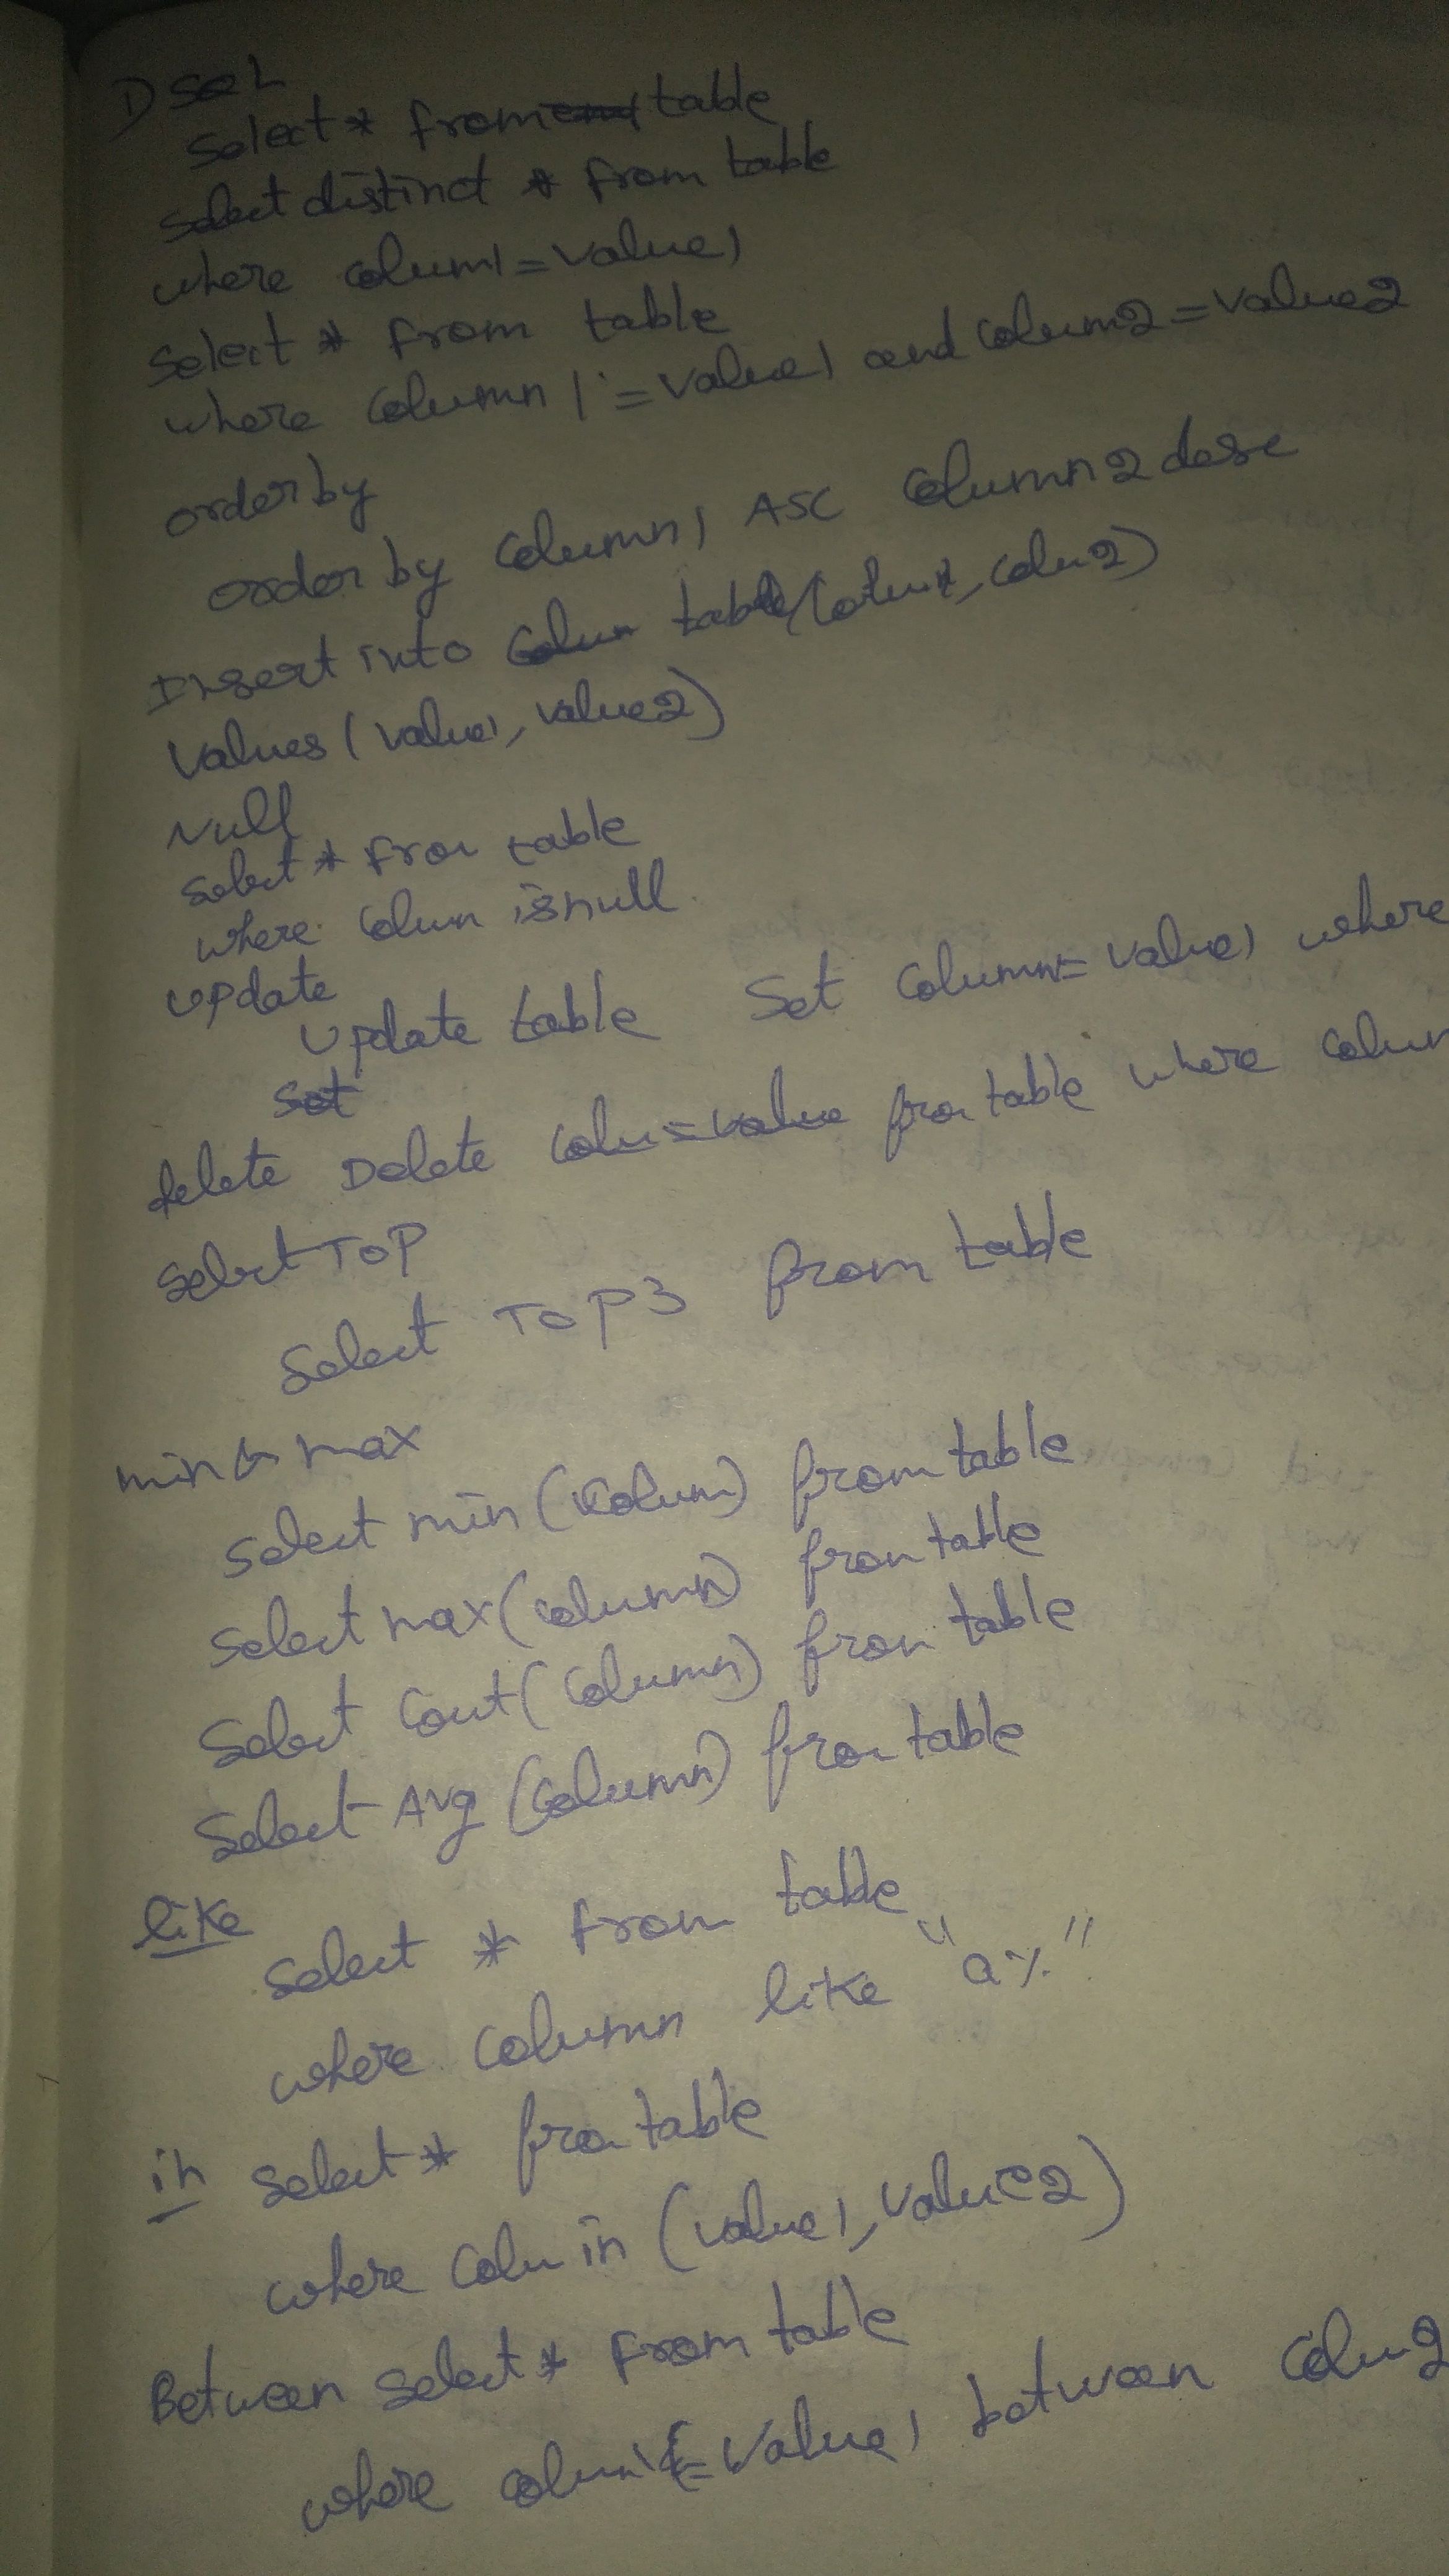 1) SQL
Select * from table
Select distinct * from table
where colum1 = value1
Select * from table
where column 1 = value1 and colum2 = value2
order by
order by column1 ASC column2 desc
Insert into table (colu1, colu2)
Values (value1, value2)
Null
Select * from table
where colum is null
update
update table Set column = value1 where
Set
delete Delete from table where colum
Select TOP
Select TOP 3 from table
min & max
Select min (column) from table
Select max (column) from table
Select Cout (column) from table
Select Avg (column) from table
like
Select * from table
where column like "a%"
in Select * from table
where colu in (value1, value2)
Between Select * from table
where colum1 = Value1 between colu2